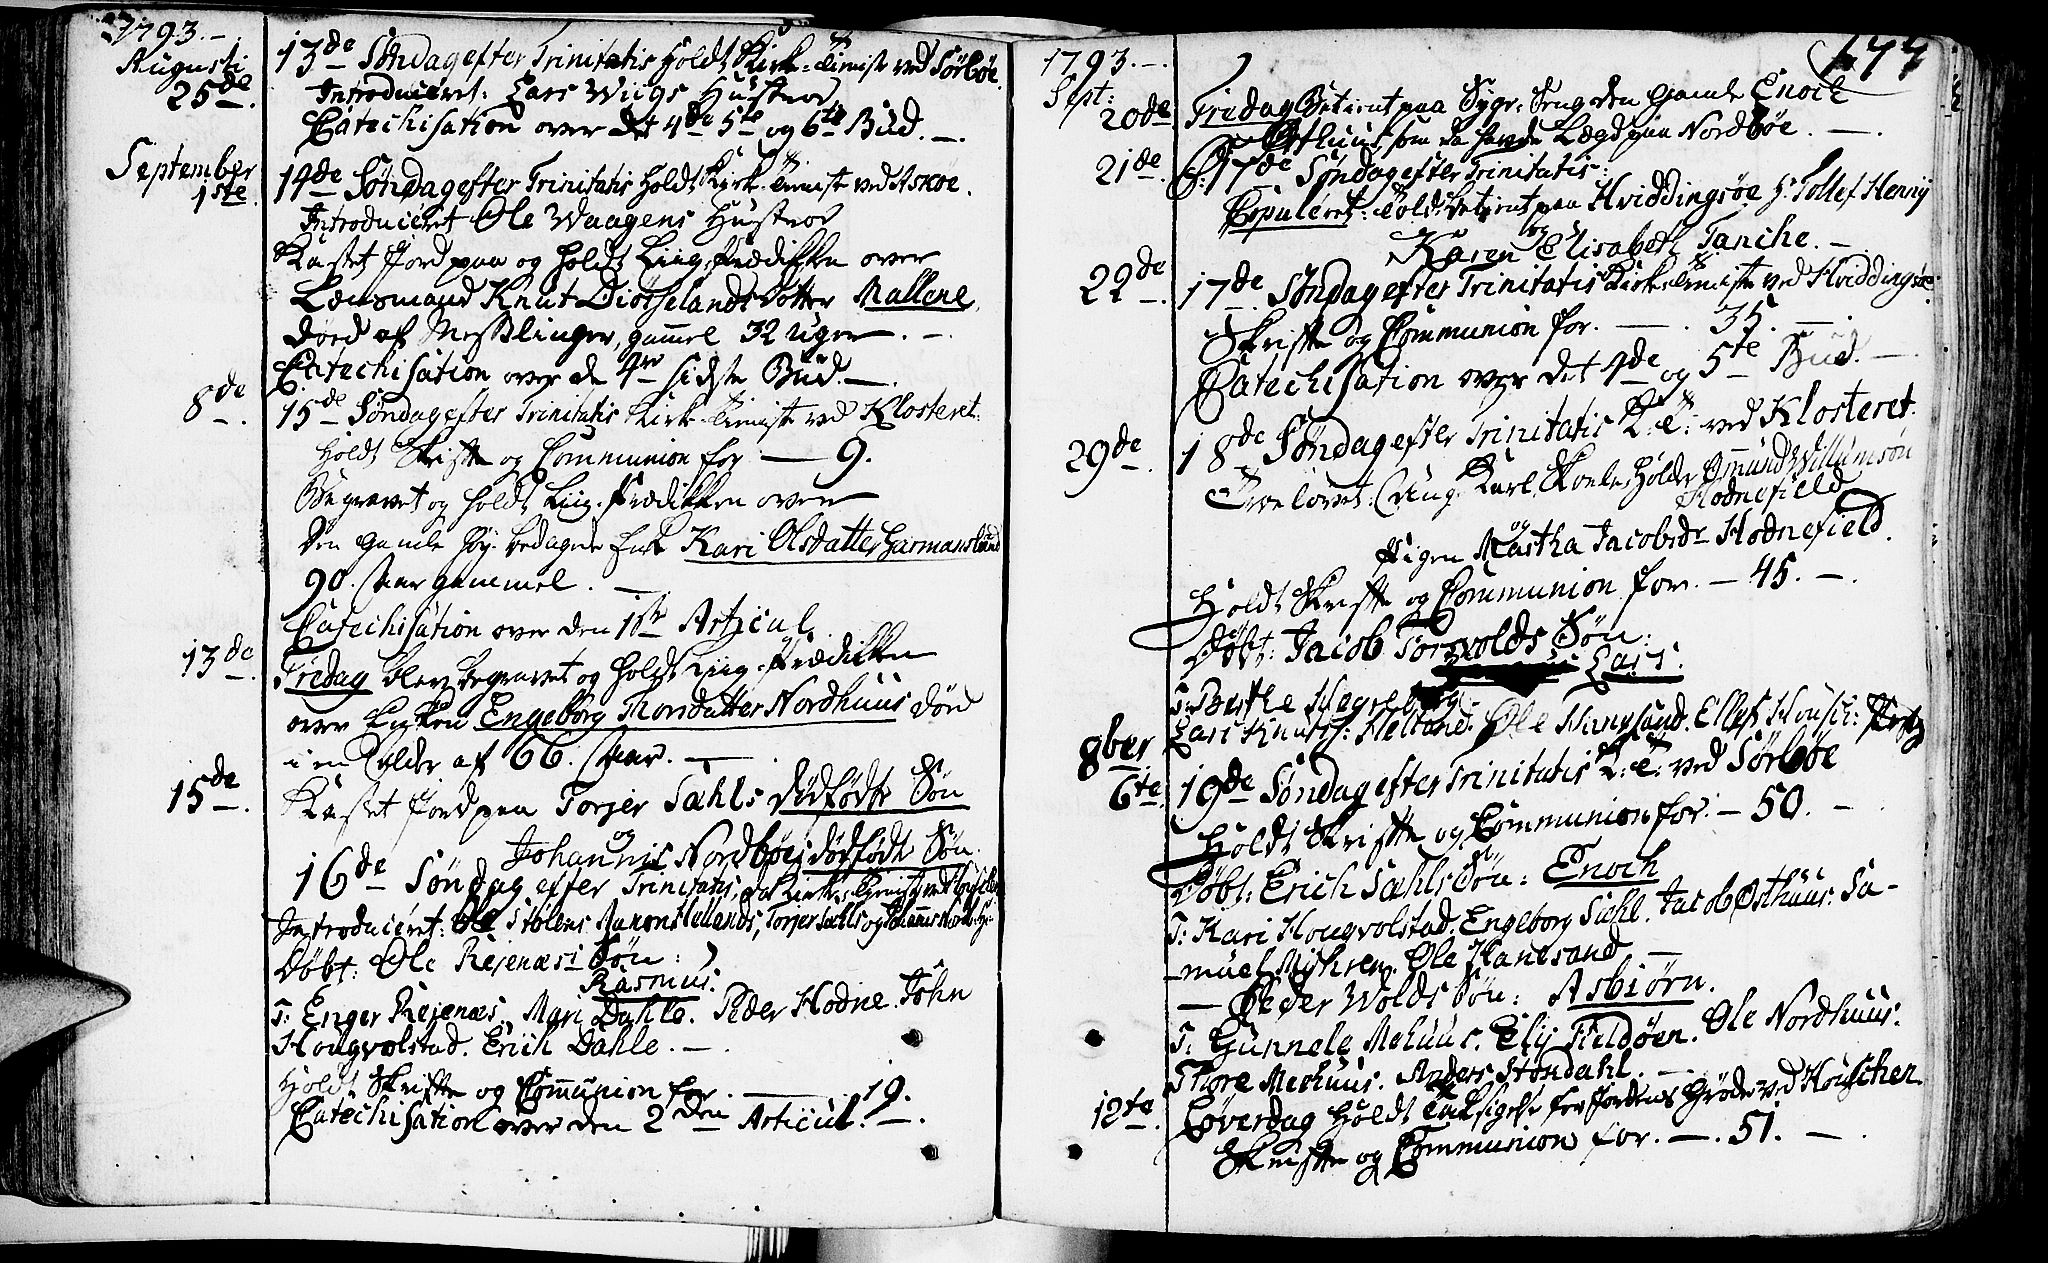 1793.-.
Augusti
25de.
13de Søndag efter Trinitatis holdt Kirke-Tieniste ved Sørbøe.
Introduceret: Lars Wiigs Hustroe
Catechisation over det 4de 5te og 6te Bud.-.
September
1ste.
14de Søndag efter Trinitatis holdt Kirke-Tieniste ved Askøe.
Introduceret Ole Waagens Hustroe
Kastet Jord paa og holdt Liig-Prædikken over
Lensmand Knut Diørselands Dotter Mallene,
døed af Messlinger, gammel 32 Uger.-.
Catechisation over de 4re sidste Bud.-.
8de
-.
15de Søndag efter Trinitatis Kirke-Tieniste ved Klosteret:
holdt Skrifte og Communion for - 9.
Begravet og holdt Liig-Prædikken over
den gamle høy-bedagede Enke Kari Olsdatter Garmanslund
90. Aar gammel.-
Catechisation over den 1ste Articul.
13de
-.
Fredag blev begravet og holdt Liig-Prædikken
over Enken Engeborg Thorsdatter Nordhuus død
i en Alder af 66. Aar.-
15de
-.
Kastet Jord paa Torjer Sahls dødfødte Søn
og
Johannis Nordbøes dødfødte Søn.
16de Søndag efter Trinitatis, da Kirke-Tieniste ved
Introduceret: Ole Stølens, Hellands, Torjer Sahls og Johannis Nordbøes
Døbt: Ole Rejenæsi Søn:
Rasmus.
T: Enger Rejenæs. Mari Dahle. Peder Hodne. John
Hougvolstad. Erich Dahle.-.
Holdt Skrifte og Communion for. - 19.
Catechisation over den 2den Articul.-.
1793.-.
177
Sept:
20de
Fredag Betient paa Syge-Seng den gamle Enoch
som da havde Lægd paa Nordbøe.-.
21de
17de Søndag efter Trinitatis:
Copuleret: Toldbetient paa Hviddingsøe Hr Tollef Henrij
og
Karen Elisabeth Tanche.-
22de
-.
17de Søndag efter Trinitatis Kirke-Tieniste ved Hviddingsøe.
Skrifte og Communion for. -. 35. -.
Catechisation over det 4de og 5te Bud.-
29de
-.
18de Søndag efter Trinitatis K: T: ved Klosteret.
Troelovet: Ung-Karl, Skoele-Holder Osmund Villumsøn
Hodnefield
og
Pigen Martha Jacobsdr Hodnefield.
Holdt Skrifte og Communion for. - 45. -.
Døbt: Jacob Torsvolds Søn:
Lars.
T: Berthe Hegreberg.
Lars Knuts: Helland. Ole Hanssand. Ellef
8ber
6te.
19de Søndag efter Trinitatis K: T: ved Sørbøe
Holdt Skrifte og Communion for. - 50. -
Døbt: Erich Sahls Søn: Enoch
T: Kari Hougvolstad. Engeborg Sahl. Jacob Østhuus: Sa-
muel Myhren. Ole Hanssand -
- Peder Wolds Søn: Asbiørn.
T: Gunnele Mehuus. Elij Fieldøen. Ole Nordhuus.
Thore Mehuus. Anders Støndahl.-
12te.
Løverdag Holdt Taksigelse for Jordens Grøde ved Houschen
Skrifte og Communion for. -. 51. -.